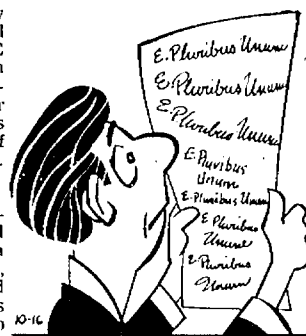 E. Pluribus Unum
E. Pluribus Unum
E. Pluribus Unum
E. Pluribus
Unum
E. Pluribus Unum
E Pluribus
Unum
E. Pluribus
Unum
10-16